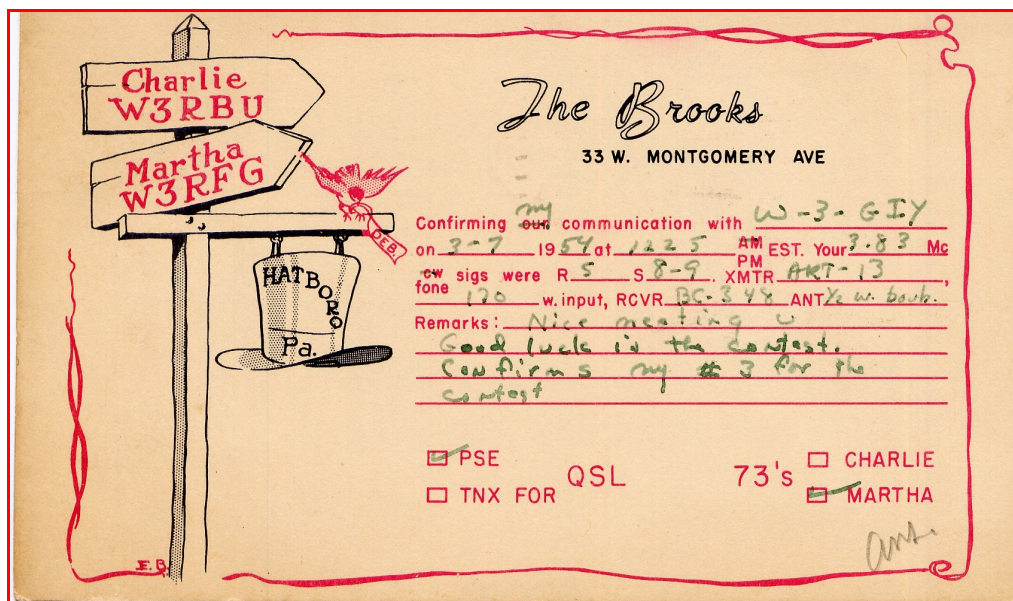 Charlie
W3RBU
Martha
W3RFG
DEB.
HATBORO
Pa.
The Brooks
33 W. MONTGOMERY AVE
my
Confirming our communication with W-3-GIY
on 3-7 1954 at 1225 AM PM EST. Your 3.83 Mc
cw fone sigs were R 5 S 8-9. XMTR ART-13,
170 w. input, RCVR BC-348 ANT 1/2 w.
Remarks: Nice meeting u
Good luck in the contest.
Confirms my # 3 for the
contest
PSE
TNX FOR
QSL
73's
CHARLIE
MARTHA
E.B.
ans.